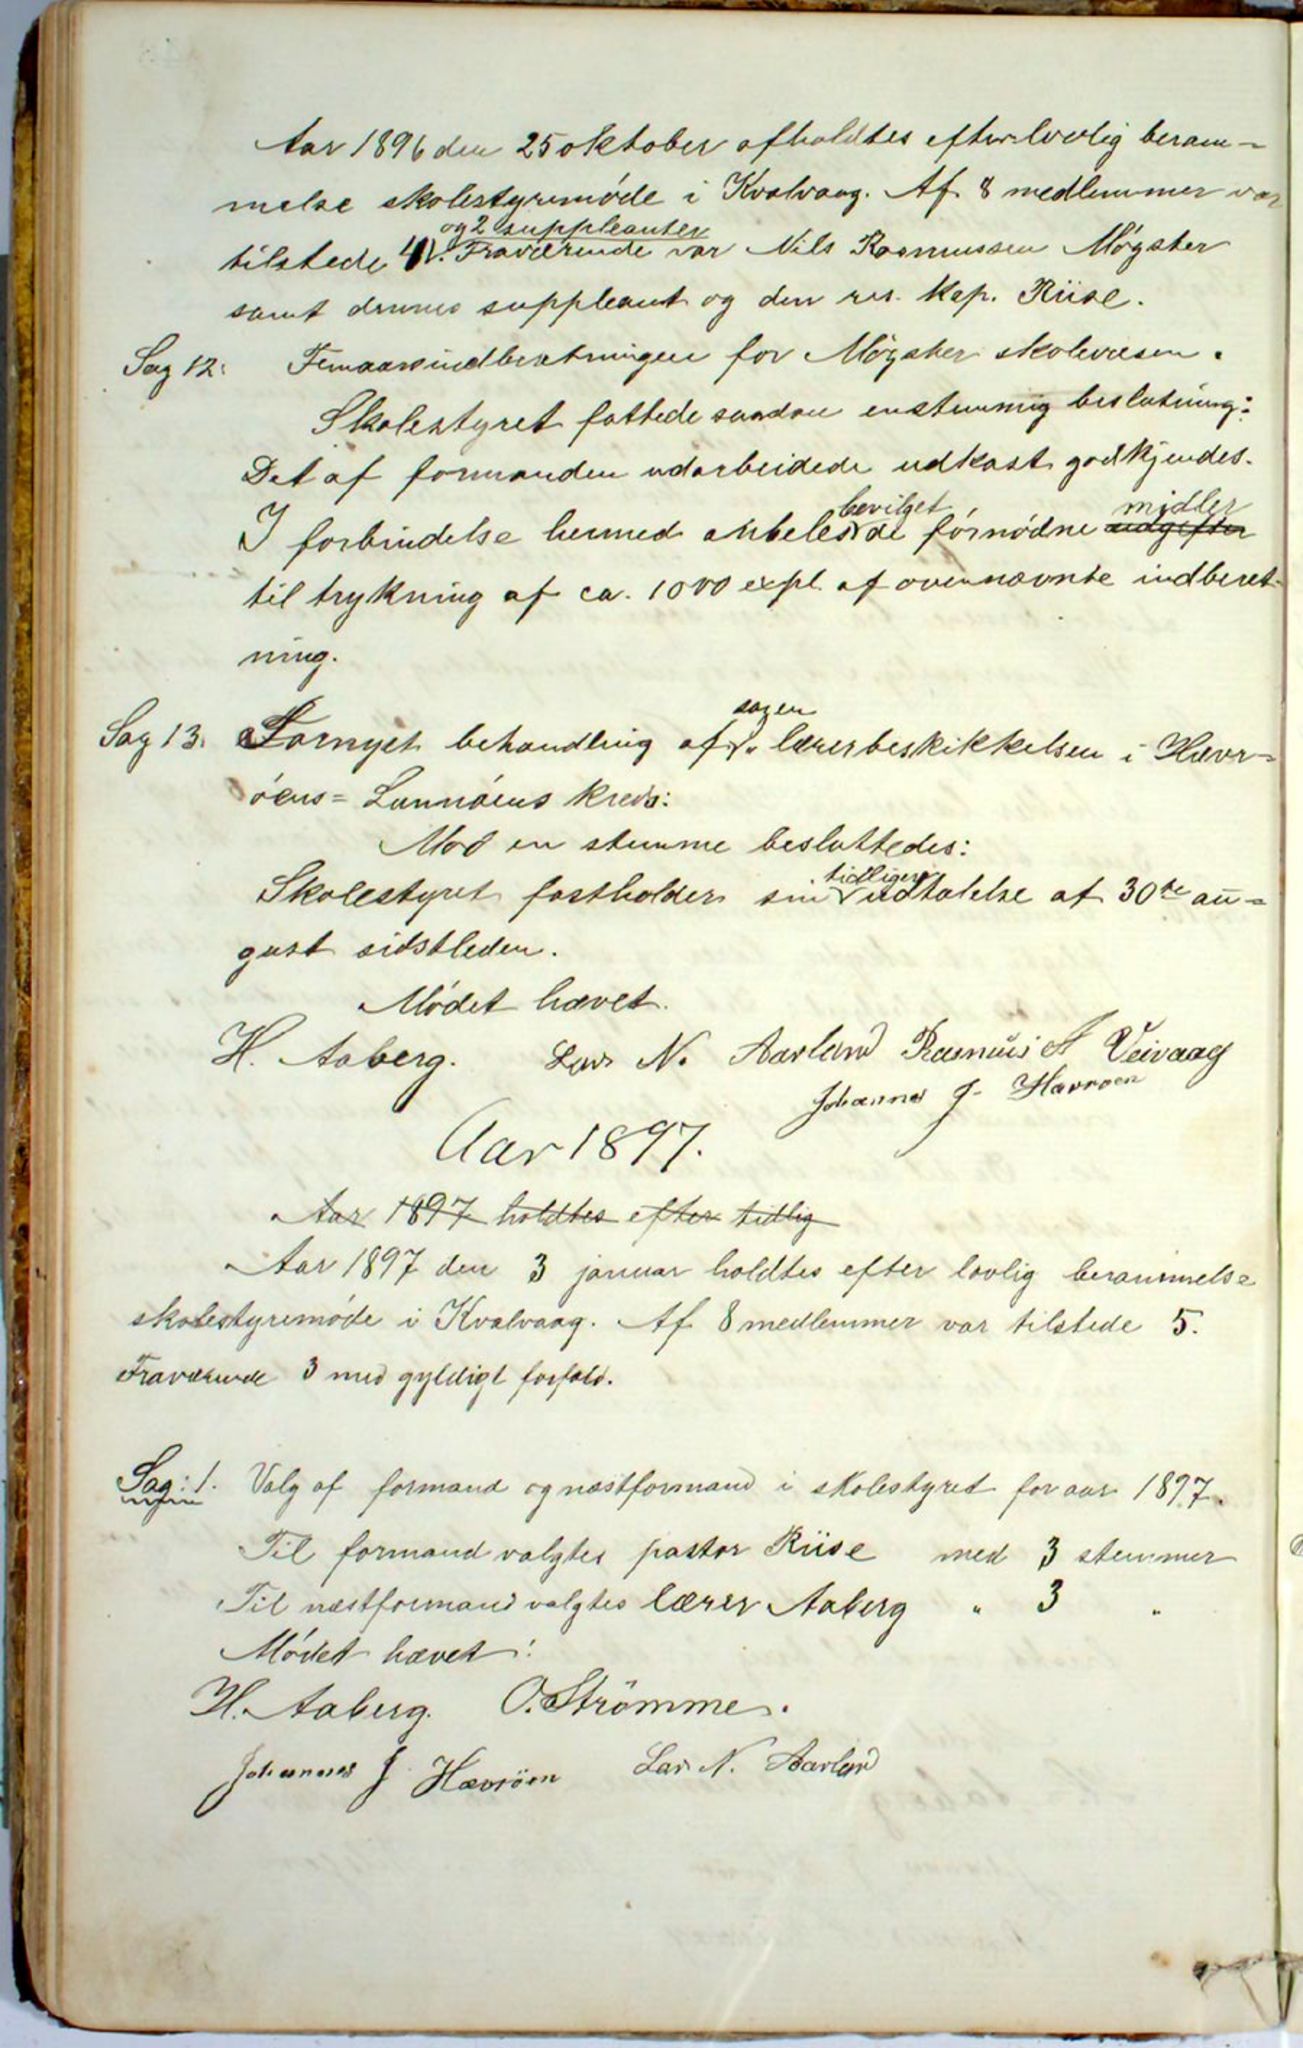 Aar 1896 den 25 oktober afholdtes efter lovlig beram-
melse skolestyremøde i Kvalvaag. Af 8 medlemmer var
og 2 suppleanter
tilstede 4. Fraværende var Nils Rasmussen Møgster
samt dennes suppleant og den res. kap. Riise.
Sag 12. Femaarsindberetningen for Møgster skolevæsen.
Skolestyret fattede saadan enstemmig beslutning:
Det af formanden udarbeidede udkast godkjendes.
bevilget midler
I forbindelse hermed anbefales de fórnødne udgifter
til trykning af ca. 1000 expl. af ovennævnte indberet-
ning.
sagen
Sag 13. Fornyet behandling af lærerbeskikkelsen i Hævr-
øens = Lunnøens kreds:
Mod en stemme besluttedes:
tidligere
Skolestyret fastholder sin udtalelse af 30te au-
gust sidstleden.
Mødet hævet.
H. Aaberg. Lars N. Aarland Rasmus A Veivaag
Johannes J. Hævrøen
Aar 1897.
Aar 1897 holdtes efter tidlig
Aar 1897 den 3 januar holdtes efter lovlig berammelse
skolestyremøde i Kvalvaag. Af 8 medlemmer var tilstede 5.
Fraværende 3 med gyldigt forfald.
Sag: 1. Valg af formand og næstformand i skolestyret for aar 1897.
Til formand valgtes pastor Riise med 3 stemmer
Til næstformand valgtes lærer Aaberg " 3 "
Mødet hævet:
H. Aaberg. O. Strömme.
Johannes J Hævröen Lars N. Aarland